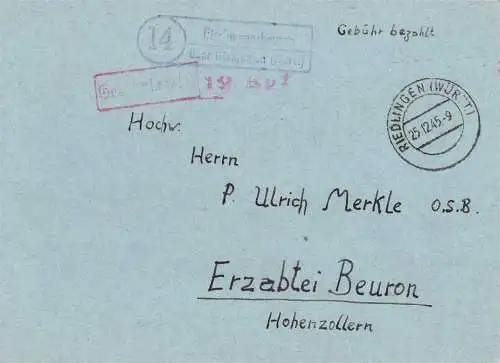 Gebühr bezahlt
14
RIEDLINGEN (WÜRTT.)
25.12.45.-9
Hochw.
Herrn
P. Ulrich Merkle O.S.B.
Erzabtei Beuron
Hohenzollern